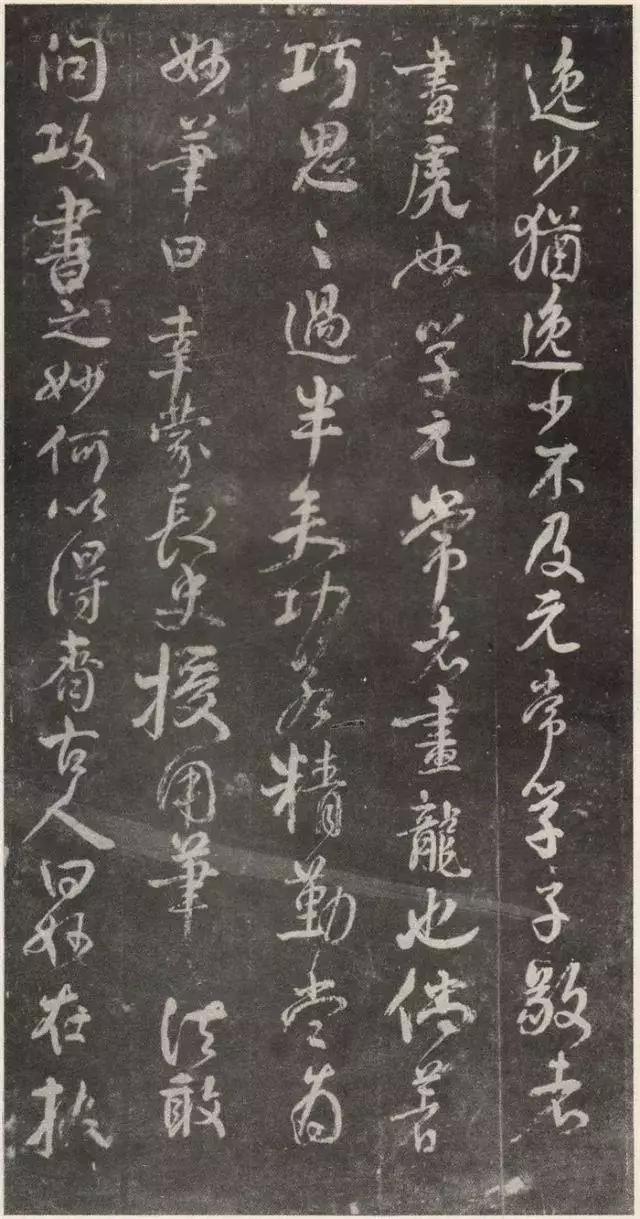 逸少猶逸少不及元常學子敬者
畫虎也學元常者畫龍也倘著
巧思〻過半矣功若精勤當為
妙筆曰幸蒙長史授用筆法敢
問攻書之妙何以得齊古人曰妙在執